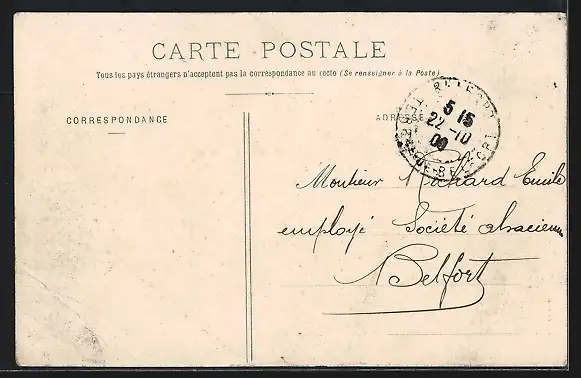 CARTE POSTALE
Tous les pays étrangers n'acceptent pas la correspondance au recto (Se renseigner à la Poste)
CORRESPONDANCE
ADRESSE
BELFORT
5 15
22 -10
09
TERRRE DE BELFORT
Monsieur Richard Emile
employé Société alsacienne
Belfort